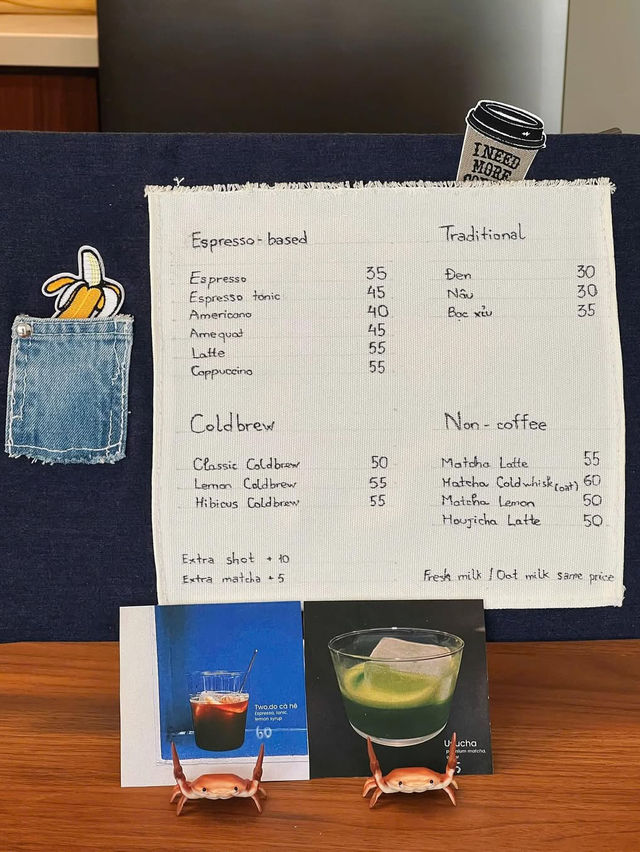 I NEED
MORE
Espresso-based
Espresso 35
Espresso tonic 45
Americano 40
Amequat 45
Latte 55
Cappuccino 55
Traditional
Đen 30
Nâu 30
Bạc xỉu 35
Coldbrew
Classic Coldbrew 50
Lemon Coldbrew 55
Hibicus Coldbrew 55
Non-coffee
Matcha Latte 55
Matcha Coldwhisk (oat) 60
Matcha Lemon 50
Houjicha Latte 50
Extra shot + 10
Extra matcha + 5
Fresh milk / Oat milk same price
Two.do cà hê
Espresso, tonic,
lemon syrup
60
premium matcha,